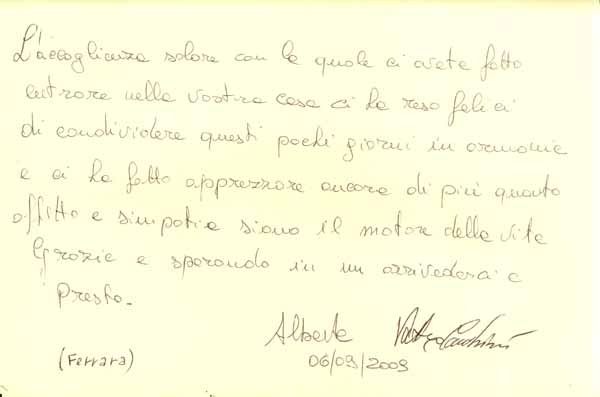 L'accoglienza solare con la quale ci avete fatto
entrare nella vostra casa ci ha reso felici
di condividere questi pochi giorni in armonia
e ci ha fatto apprezzare ancora di più quanto
affitto e simpatia siano il motore della vita
Grazie e sperando in un arrivederci a
presto.
Alberto
06/09/2009
(Ferrara)